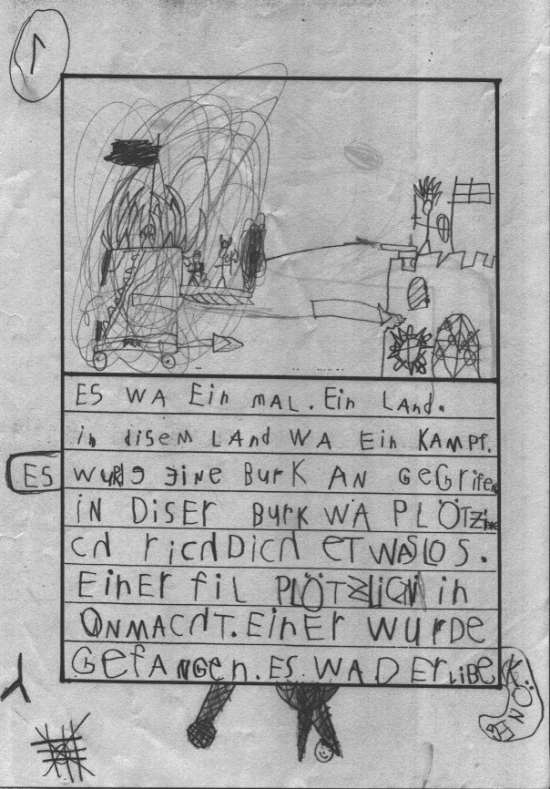 1
ES WA Ein mAL. Ein LAnd.
in diSEM LAnd WA Ein KAMPf.
ES wurde eine BurK AN GeGrifen
iN DiSEr BurK WA PLÖTZ
cd ricdDicd eTWASLOS.
EinEr fil PLÖTZLICH in
ONMACdT. EinEr wurde
GefANGen. ES WA DEr LiBE KÖNEG